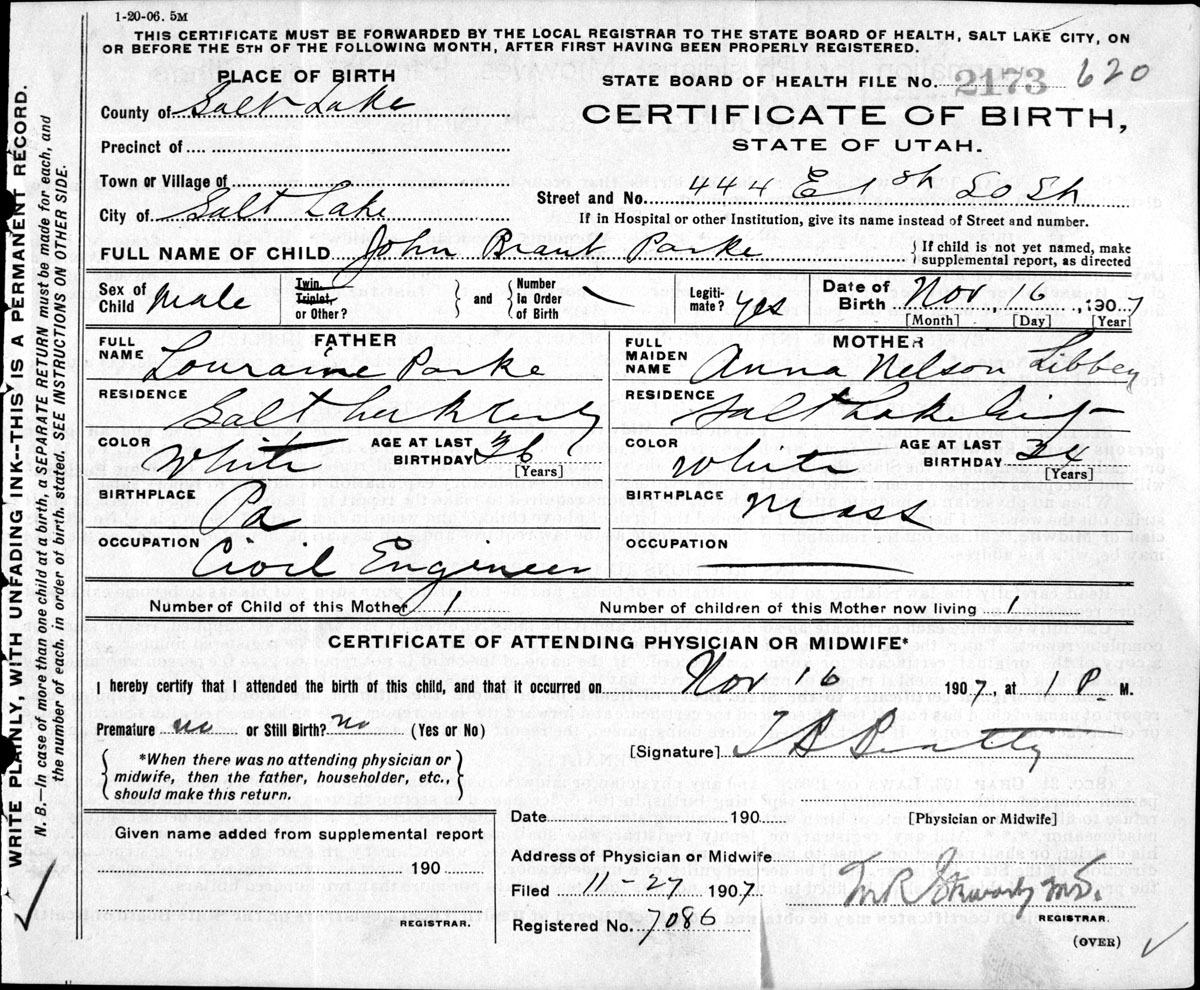 1-20-06. 5M
THIS CERTIFICATE MUST BE FORWARDED BY THE LOCAL REGISTRAR TO THE STATE BOARD OF HEALTH, SALT LAKE CITY, ON
OR BEFORE THE 5TH OF THE FOLLOWING MONTH, AFTER FIRST HAVING BEEN PROPERLY REGISTERED.
WRITE PLAINLY, WITH UNFADING INK--THIS IS A PERMANENT RECORD.
N. B.—In case of more than one child at birth, a SEPARATE RETURN must be made for each, and
the number of each, in order of birth, stated. SEE INSTRUCTIONS ON OTHER SIDE.
PLACE OF BIRTH
County of Salt Lake
Precinct of
Town or Village of
City of Salt Lake
STATE BOARD OF HEALTH FILE No. 2173 620
CERTIFICATE OF BIRTH,
STATE OF UTAH.
Street and No. 444 E 1st So St
If in Hospital or other Institution, give its name instead of Street and number.
FULL NAME OF CHILD John Brant Parke
} If child is not yet named, make
supplemental report, as directed
Sex of Child Male
Twin, Triplet, or Other? } and { Number in Order of Birth
Legiti-mate? yes
Date of Birth Nov 16, 1907
[Month] [Day] [Year]
FATHER
FULL NAME Louraine Parke
RESIDENCE Salt Lake City
COLOR White AGE AT LAST BIRTHDAY 36 [Years]
BIRTHPLACE Pa
OCCUPATION Civil Engineer
MOTHER
FULL MAIDEN NAME Anna Nelson Libbey
RESIDENCE Salt Lake City
COLOR White AGE AT LAST BIRTHDAY 34 [Years]
BIRTHPLACE Mass
OCCUPATION
Number of Child of this Mother 1
Number of children of this Mother now living 1
CERTIFICATE OF ATTENDING PHYSICIAN OR MIDWIFE*
I hereby certify that I attended the birth of this child, and that it occurred on Nov 16 1907, at 1 P M.
Premature no or Still Birth? No (Yes or No)
[Signature] T B Beatty
{ *When there was no attending physician or
midwife, then the father, householder, etc.,
should make this return. }
Given name added from supplemental report
190
REGISTRAR.
Date 190
[Physician or Midwife]
Address of Physician or Midwife
Filed 11 27 1907.
Registered No. 7086
M.R. Stewart M.D.
REGISTRAR.
(OVER)